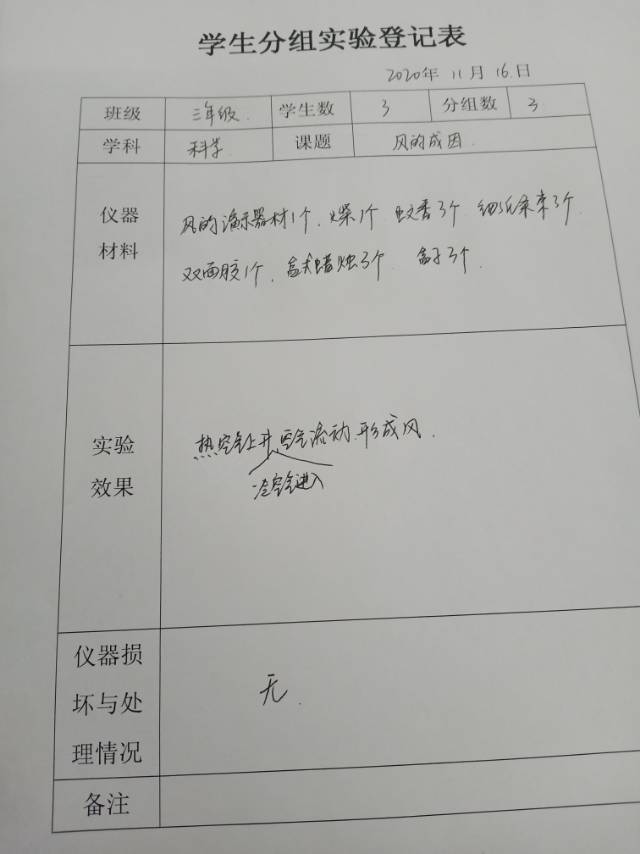 学生分组实验登记表
2020年 11月 16日
班级 三年级 学生数 3 分组数 3
学科 科学 课题 风的成因
仪器材料
风的演示器材1个、火柴1个 蚊香3个 细纸条束3个
双面胶1个、盒式蜡烛3个、盒子3个.
实验效果
热空气上升 空气流动.形成风.
冷空气进入
仪器损坏与处理情况
无
备注